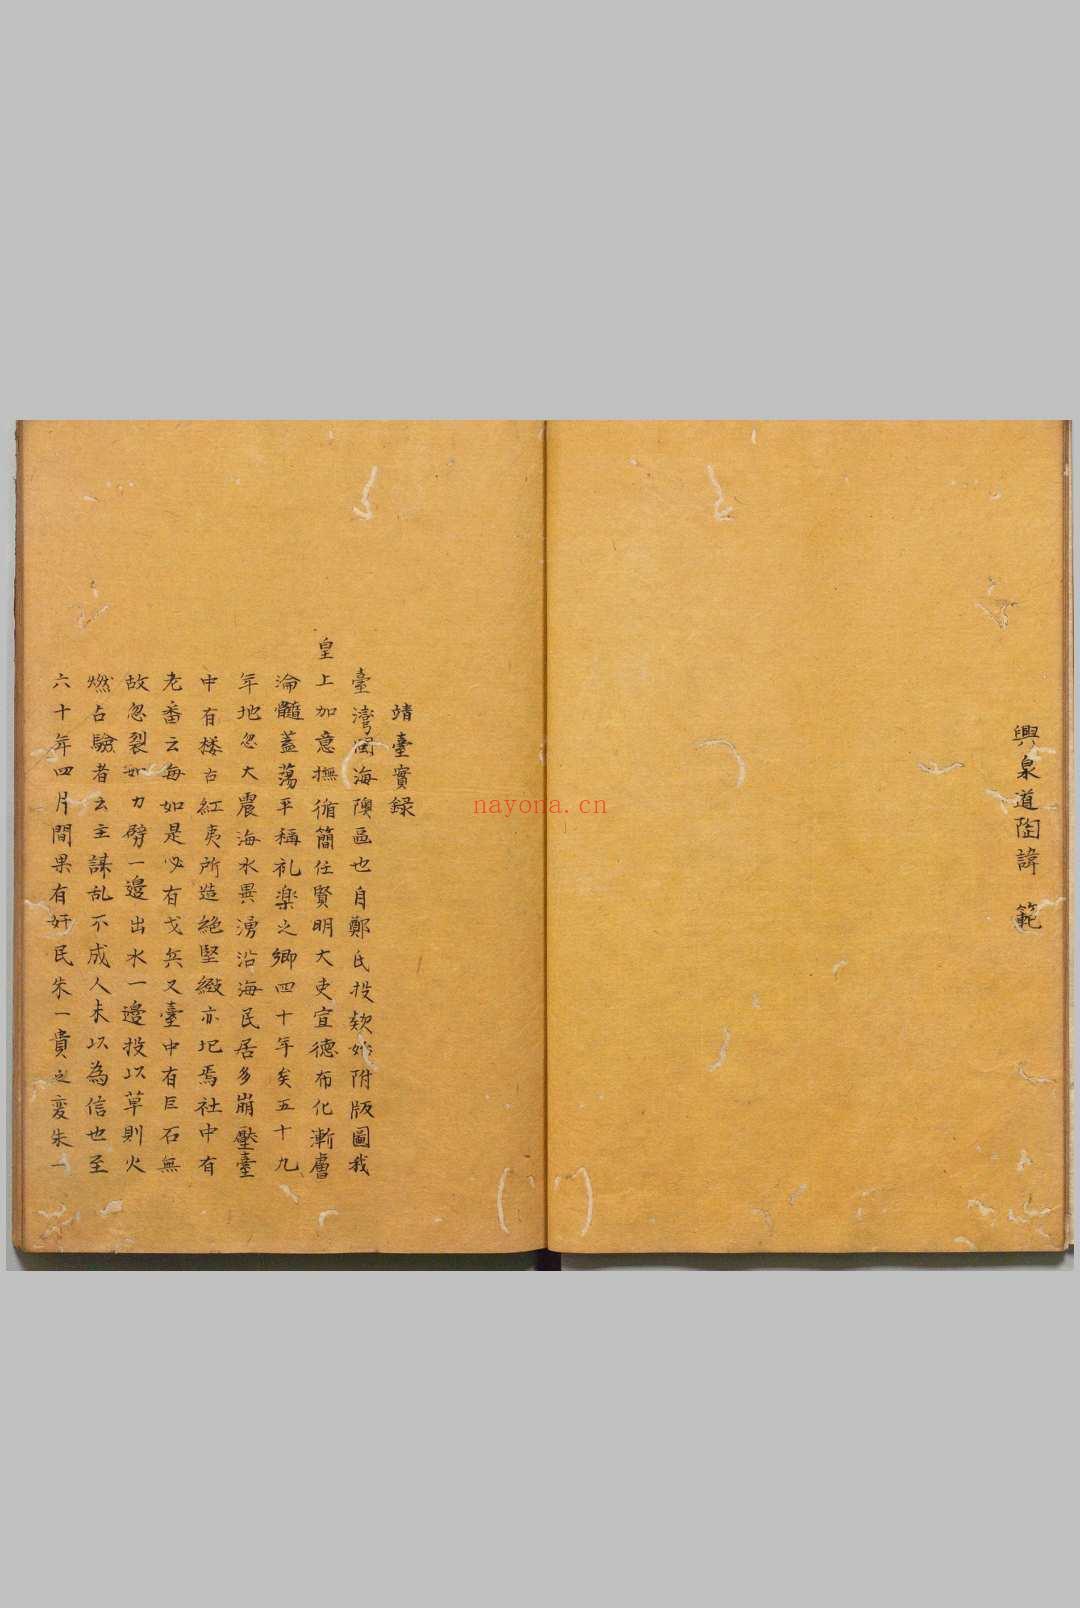 興泉道陶諱 範
靖臺實録
臺灣閩海隩區也自鄭氏投欵始附版圖我
皇上加意撫循簡任賢明大吏宣德布化漸膚
淪髓蓋蕩平稱礼楽之鄉四十年矣五十九
年地忽大震海水異湧沿海民居多崩壓臺
中有楼古紅夷所造絶堅緻亦圮焉社中有
老番云每如是必有戈兵又臺中有巨石無
故忽裂如刀劈一邉出水一邉投以草則火
燃占驗者云主謀乱不成人未以為信也至
六十年四月間果有奸民朱一貴之変朱一
nayona.cn